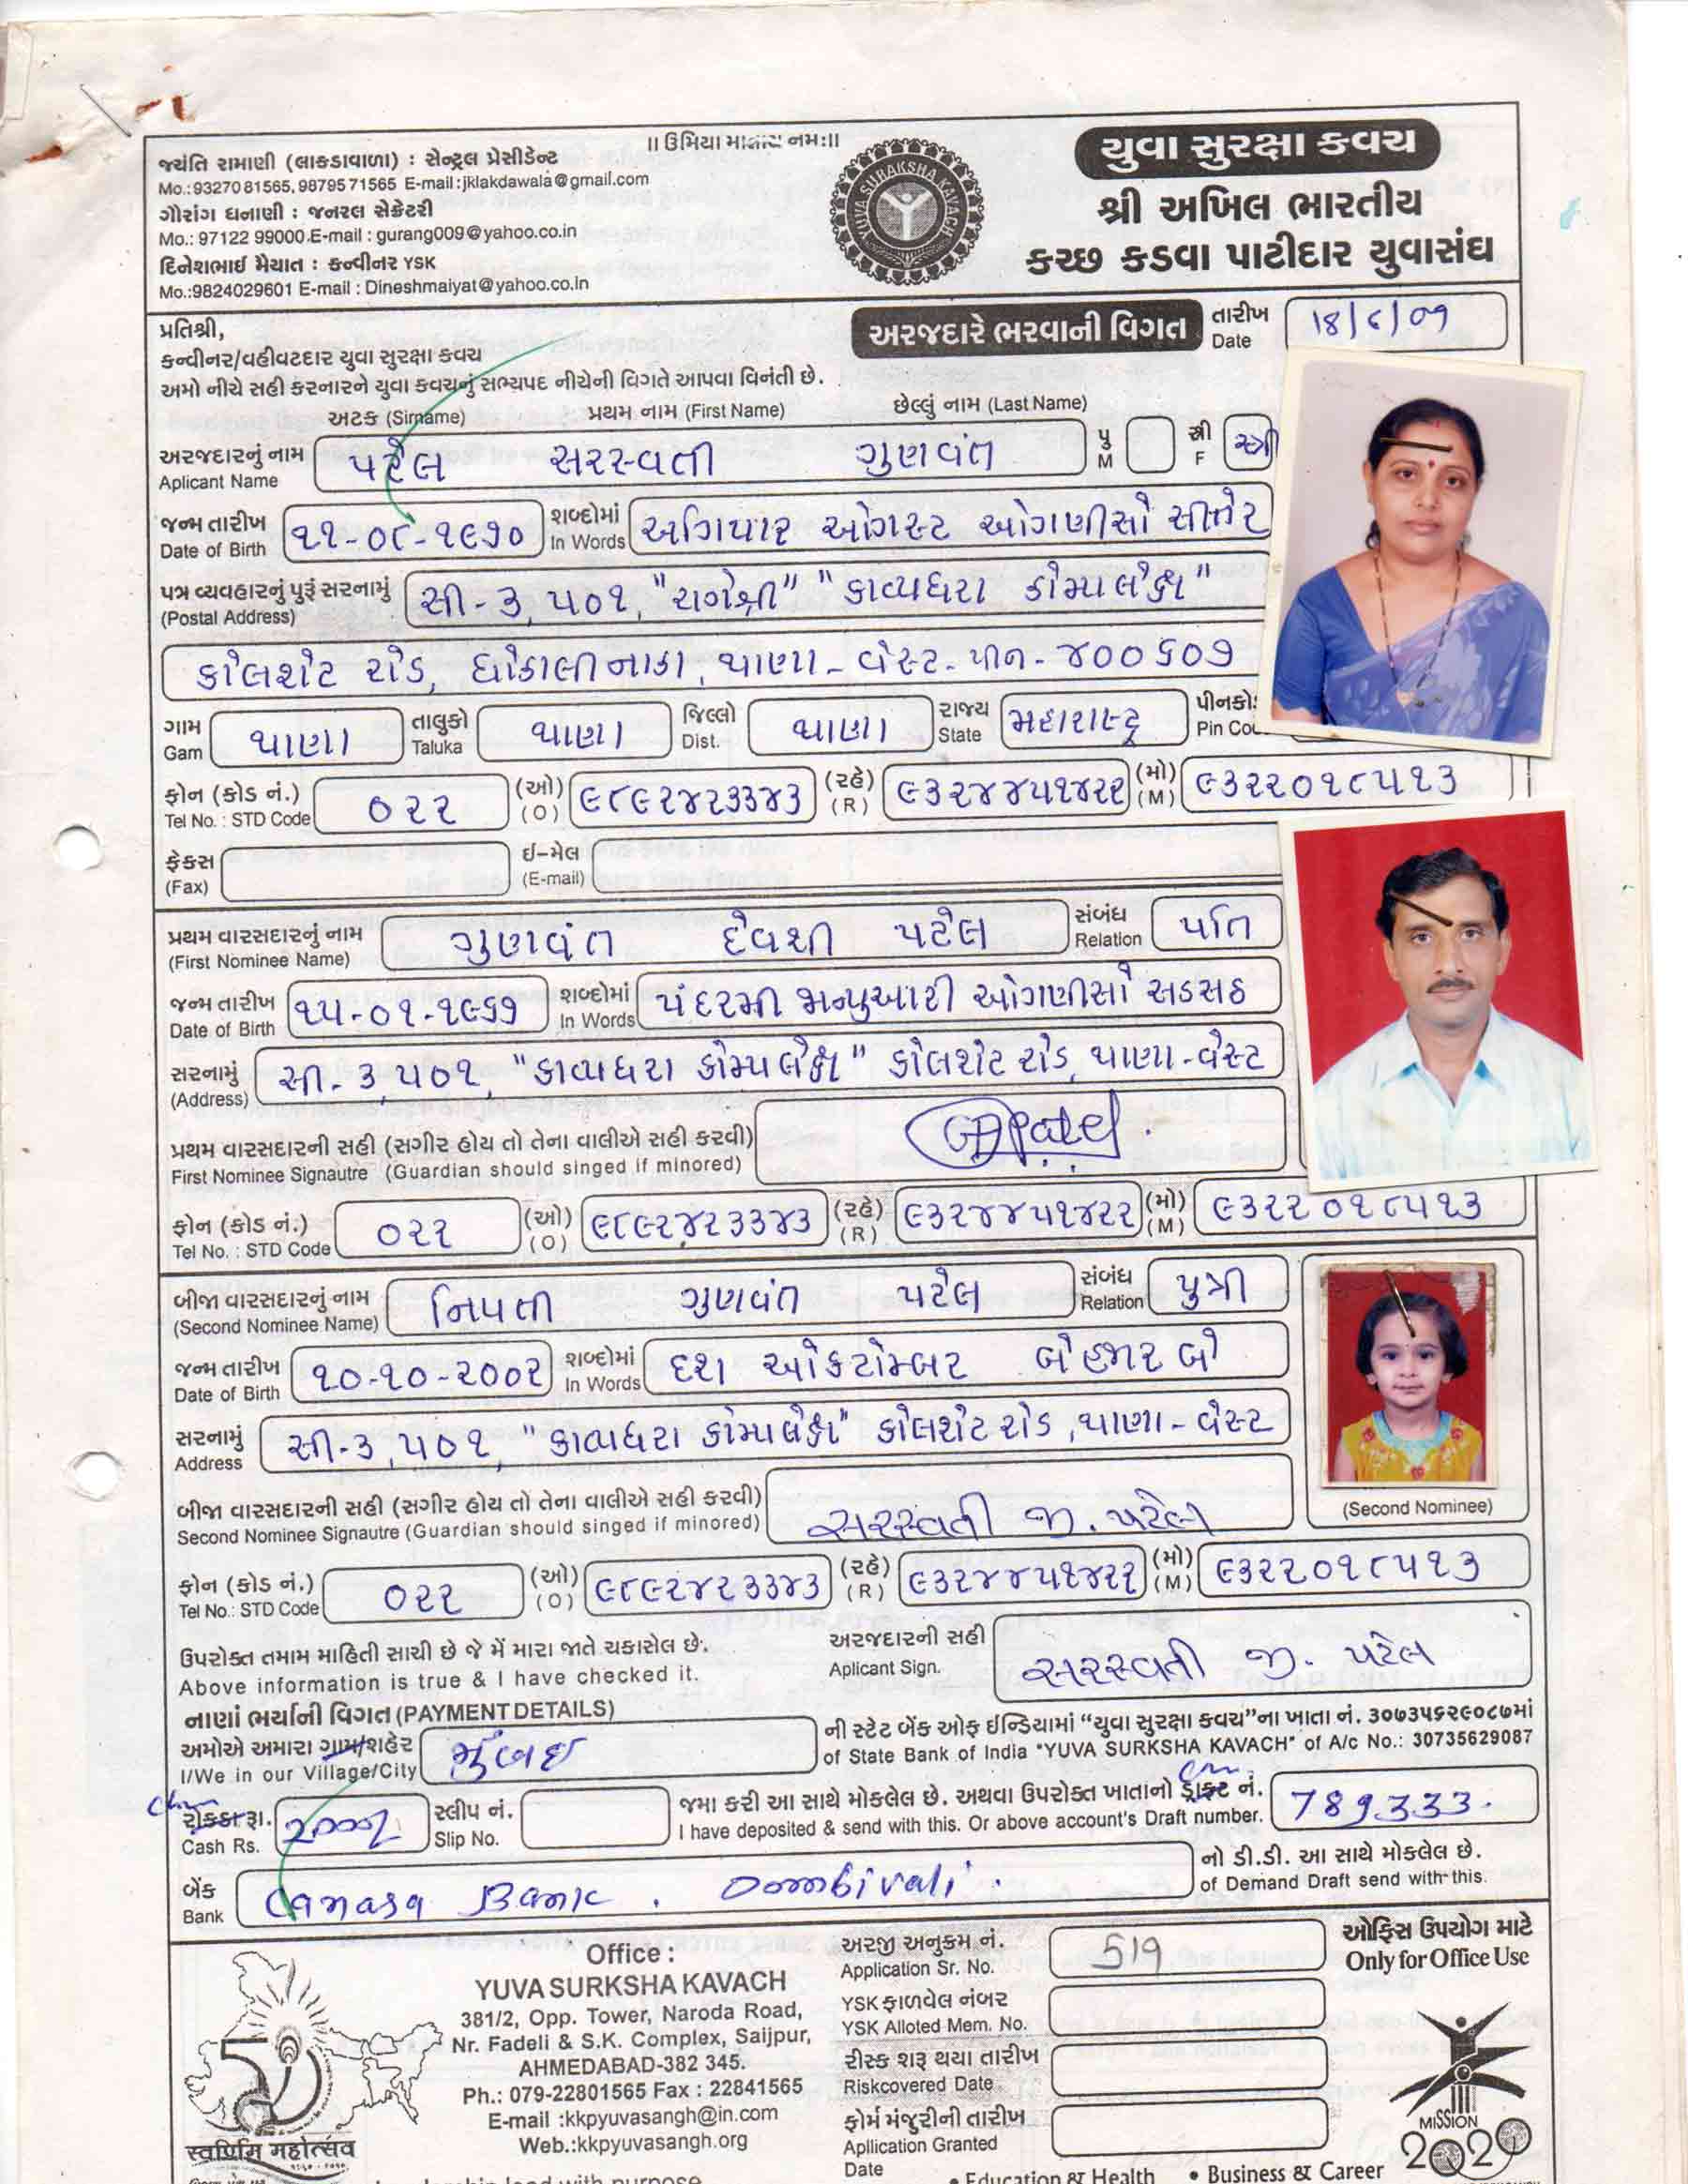 ॥ ઉમિયા માતાય નમઃ॥
જયંતિ રામાણી (લાકડાવાળા) : સેન્ટ્રલ પ્રેસીડેન્ટ
Mo.:9327081565, 9879571565 E-mail:jklakdawala@gmail.com
ગૌરાંગ ધનાણી : જનરલ સેક્રેટરી
Mo.: 97122 99000 E-mail : gurang009@yahoo.co.in
દિનેશભાઈ મૈયાત : કન્વીનર YSK
Mo.:9824029601 E-mail : Dineshmaiyat@yahoo.co.in
YUVA SURAKSHA KAVACH
યુવા સુરક્ષા કવચ
શ્રી અખિલ ભારતીય
કચ્છ કડવા પાટીદાર યુવાસંઘ
અરજદારે ભરવાની વિગત તારીખ Date 18/6/09
પ્રતિશ્રી,
કન્વીનર/વહીવટદાર યુવા સુરક્ષા કવચ
અમો નીચે સહી કરનારને યુવા કવચનું સભ્યપદ નીચેની વિગતે આપવા વિનંતી છે.
અટક (Sirname) પ્રથમ નામ (First Name) છેલ્લું નામ (Last Name)
અરજદારનું નામ Aplicant Name પટેલ સરસ્વતી ગુણવંત પુ M સ્ત્રી F સ્ત્રી
જન્મ તારીખ Date of Birth ૧૧-૦૮-૧૯૭૦ શબ્દોમાં In Words અગિયાર ઓગસ્ટ ઓગણીસો સીત્તેર
પત્ર વ્યવહારનું પુરૂં સરનામું (Postal Address) સી-૩, ૫૦૧, "રાગેશ્રી" "કાવ્યધરા કોમ્પલેક્ષ"
કોલશેટ રોડ, ધોકાલી નાકા, થાણા-વેસ્ટ-પીન-૪૦૦૬૦૭
ગામ Gam થાણા તાલુકો Taluka થાણા જિલ્લો Dist. થાણા રાજ્ય State મહારાષ્ટ્ર પીનકો Pin Co
ફોન (કોડ નં.) Tel No. : STD Code ૦૨૨ (ઓ) (O) ૯૮૯૨૪૨૩૩૪૩ (રહે) (R) ૯૩૨૪૪૫૧૪૨૨ (મો) (M) ૯૩૨૨૦૧૮૫૧૩
ફેક્સ (Fax) ઈ-મેલ (E-mail)
પ્રથમ વારસદારનું નામ (First Nominee Name) ગુણવંત દેવશી પટેલ સંબંધ Relation પતિ
જન્મ તારીખ Date of Birth ૧૫-૦૧-૧૯૬૭ શબ્દોમાં In Words પંદરમી જાન્યુઆરી ઓગણીસો સડસઠ
સરનામું (Address) સી-૩, ૫૦૧, "કાવ્યધરા કોમ્પલેક્ષ" કોલશેટ રોડ, થાણા-વેસ્ટ
પ્રથમ વારસદારની સહી (સગીર હોય તો તેના વાલીએ સહી કરવી)
First Nominee Signautre (Guardian should singed if minored)
ફોન (કોડ નં.) Tel No. : STD Code ૦૨૨ (ઓ) (O) ૯૮૯૨૪૨૩૩૪૩ (રહે) (R) ૯૩૨૪૪૫૧૪૨૨ (મો) (M) ૯૩૨૨૦૧૮૫૧૩
બીજા વારસદારનું નામ (Second Nominee Name) નિયતી ગુણવંત પટેલ સંબંધ Relation પુત્રી
જન્મ તારીખ Date of Birth ૧૦-૧૦-૨૦૦૨ શબ્દોમાં In Words દશ ઓક્ટોમ્બર બે હજાર બે
સરનામું Address સી-૩, ૫૦૧, "કાવ્યધરા કોમ્પલેક્ષ" કોલશેટ રોડ, થાણા-વેસ્ટ
(Second Nominee)
બીજા વારસદારની સહી (સગીર હોય તો તેના વાલીએ સહી કરવી)
Second Nominee Signautre (Guardian should singed if minored) સરસ્વતી જી. પટેલ
ફોન (કોડ નં.) Tel No.: STD Code ૦૨૨ (ઓ) (O) ૯૮૯૨૪૨૩૩૪૩ (રહે) (R) ૯૩૨૪૪૫૧૪૨૨ (મો) (M) ૯૩૨૨૦૧૮૫૧૩
ઉપરોક્ત તમામ માહિતી સાચી છે જે મેં મારા જાતે ચકાસેલ છે.
Above information is true & I have checked it.
અરજદારની સહી Aplicant Sign. સરસ્વતી જી. પટેલ
નાણાં ભર્યાની વિગત (PAYMENT DETAILS)
અમોએ અમારા ગામ/શહેર I/We in our Village/City મુંબઈ
ની સ્ટેટ બેંક ઓફ ઈન્ડિયામાં “યુવા સુરક્ષા કવચ”ના ખાતા નં. ૩૦૭૩૫૬૨૯૦૮૭માં
of State Bank of India "YUVA SURKSHA KAVACH" of A/c No.: 30735629087
રોકડા રૂા. Cash Rs. સ્લીપ નં. Slip No.
જમા કરી આ સાથે મોકલેલ છે. અથવા ઉપરોક્ત ખાતાનો ડ્રાફ્ટ નં.
I have deposited & send with this. Or above account's Draft number. 789333.
બેંક Bank Canara Bank. Dombivali.
નો ડી.ડી. આ સાથે મોકલેલ છે.
of Demand Draft send with this.
Office :
YUVA SURKSHA KAVACH
381/2, Opp. Tower, Naroda Road,
Nr. Fadeli & S.K. Complex, Saijpur,
AHMEDABAD-382 345.
Ph.: 079-22801565 Fax : 22841565
E-mail :kkpyuvasangh@in.com
Web.:kkpyuvasangh.org
स्वर्णिम महोत्सव
અરજી અનુક્રમ નં. Application Sr. No. 519
YSK ફાળવેલ નંબર
YSK Alloted Mem. No.
રીસ્ક શરૂ થયા તારીખ
Riskcovered Date
ફોર્મ મંજુરીની તારીખ
Apllication Granted
Date
ઓફિસ ઉપયોગ માટે
Only for Office Use
MISSION
2020
with purpose
• Education & Health • Business & Career